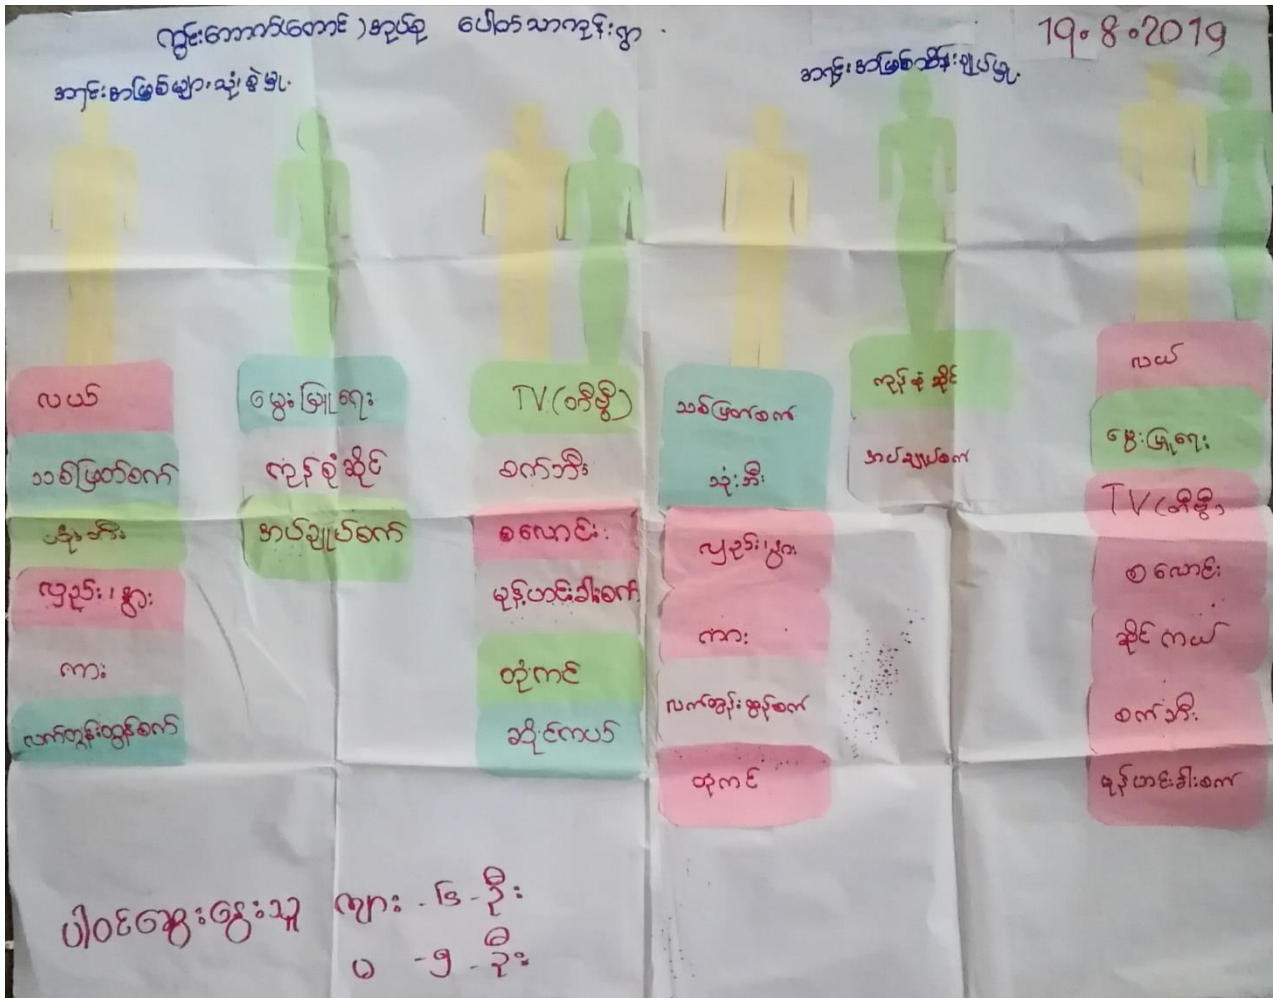 ကွင်းဘောက်(တောင်)အုပ်စု ပေါတောသာကုန်းရွာ
19.8.2019
အရင်းအမြစ်များသုံးစွဲမှု
အရင်းအမြစ်ထိန်းချုပ်မှု
လယ်
သစ်ဖြတ်စက်
သုံးဘီး
လှည်း၊နွား
ကား
လက်တွန်းထွန်စက်
မွေးမြူရေး
ကုန်စုံဆိုင်
အပ်ချုပ်စက်
TV (တီဗွီ)
စက်ဘီး
စလောင်း
မုန့်ဟင်းခါးစက်
ထုံကင်
ဆိုင်ကယ်
သစ်ဖြတ်စက်
သုံးဘီး
လှည်း၊နွား
ကား
လက်တွန်းထွန်စက်
ထုကင်
ကုန်စုံဆိုင်
အပ်ချုပ်စက်
လယ်
မွေးမြူရေး
TV (တီဗွီ)
စလောင်း
ဆိုင်ကယ်
စက်ဘီး
မုန့်ဟင်းခါးစက်
ပါဝင်ဆွေးနွေးသူ ကျား - ၆ - ဦး
မ - ၅ - ဦး